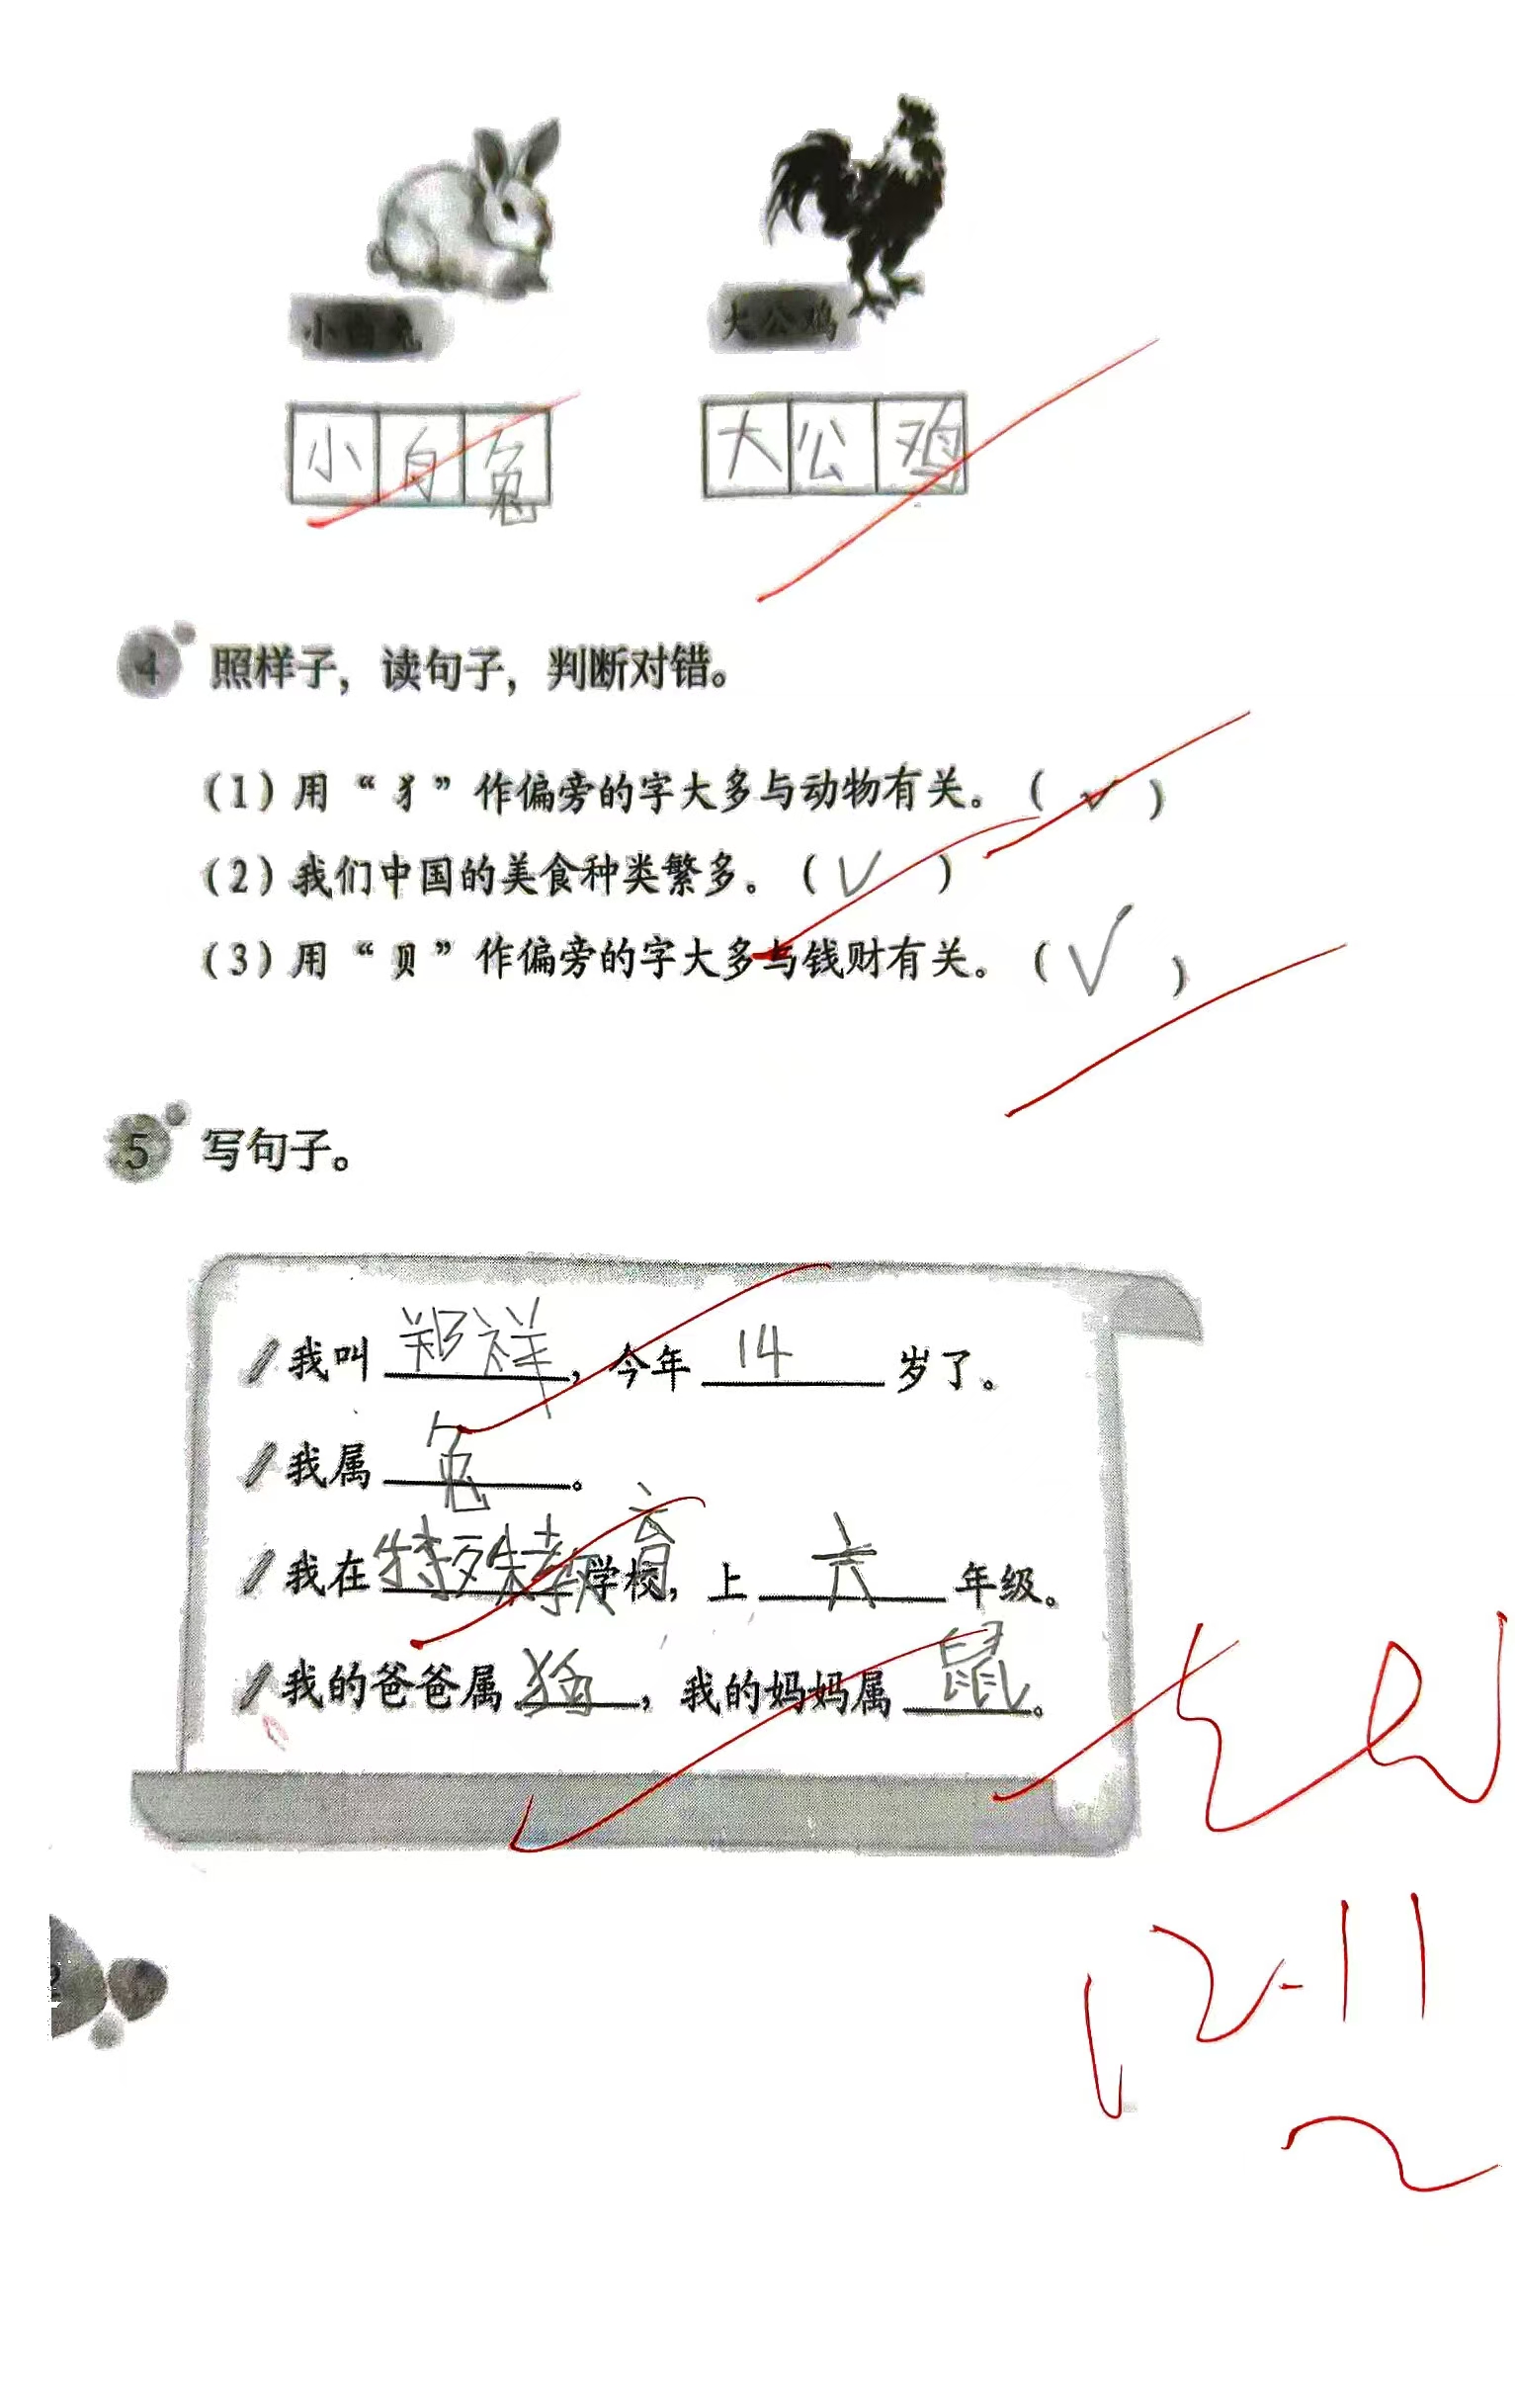 小白兔 大公鸡
小白兔 大公鸡
4 照样子，读句子，判断对错。
（1）用“犭”作偏旁的字大多与动物有关。（✓）
（2）我们中国的美食种类繁多。（✓）
（3）用“贝”作偏旁的字大多与钱财有关。（✓）
5 写句子。
我叫郑祥，今年14岁了。
我属兔。
我在特殊教育学校，上六年级。
我的爸爸属狗，我的妈妈属鼠。
2
12.11